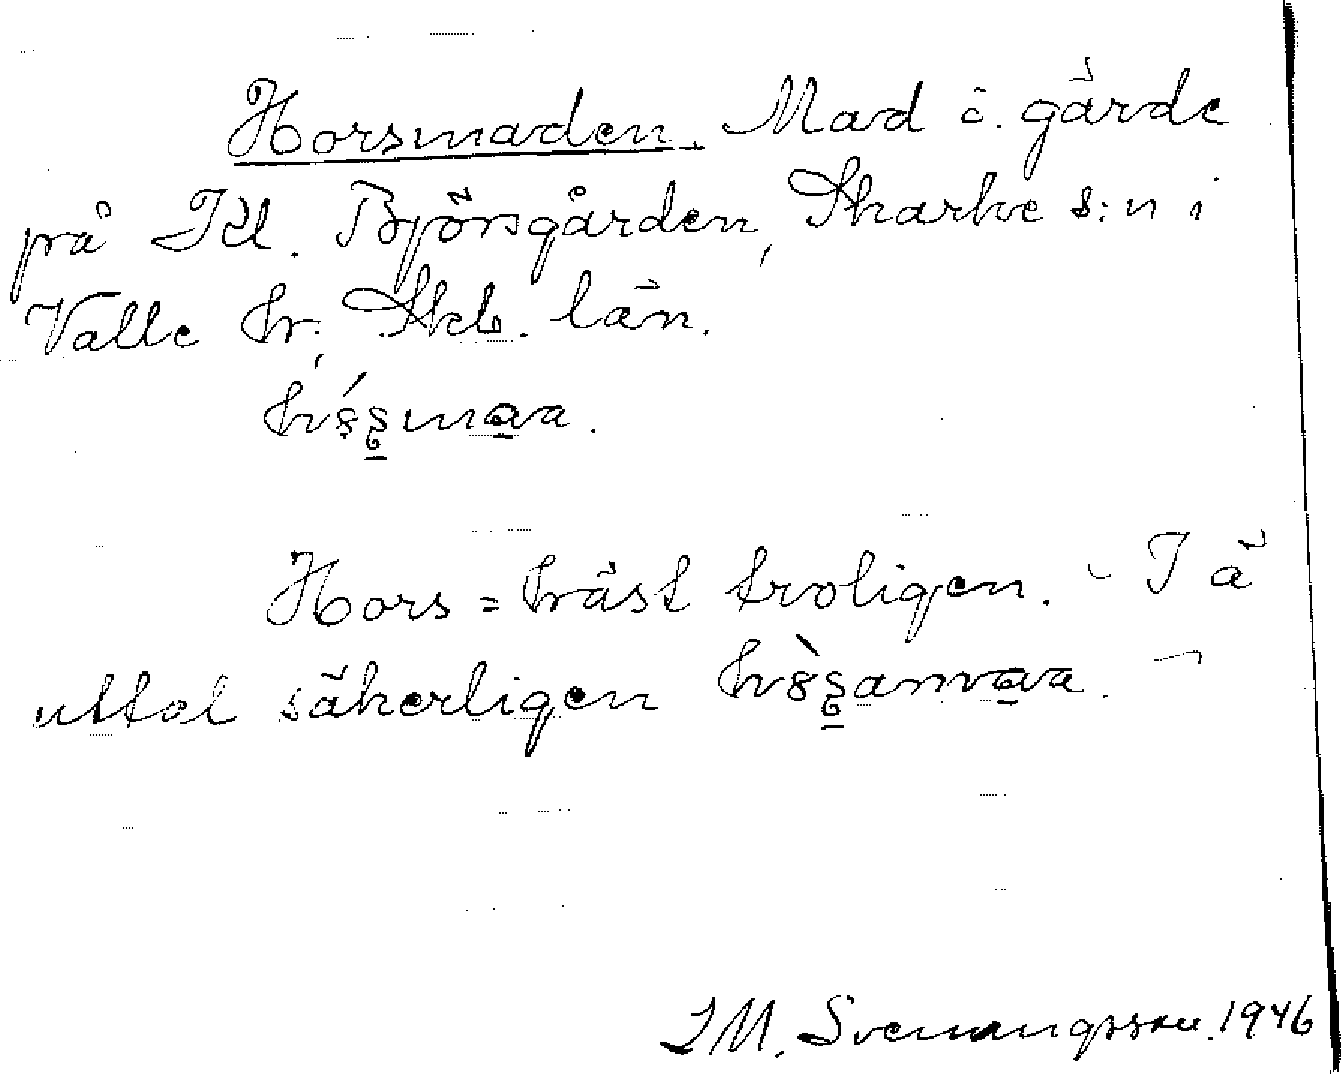 Horsmaden. Mad o. gärde
på Kl. Björsgården, Skarke s:n i
Valle hr; Skb. län.
Hors = häst troligen. - I ä
uttal säkerligen
J M. Svenungsson. 1946